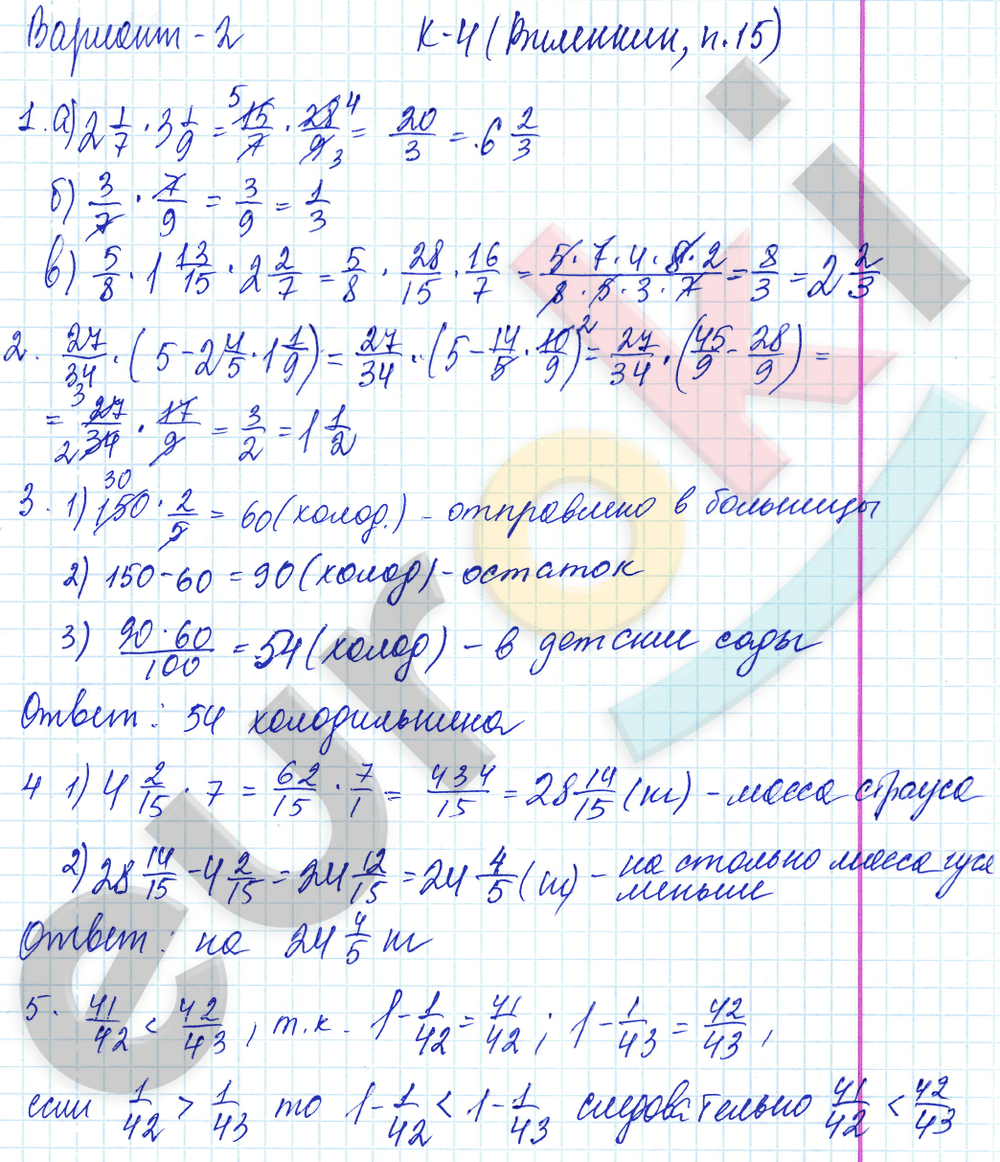 Вариант - 2 К-4 (Виленкин, п.15)
1. а) 2 1/7 · 3 1/9 = 15/7 · 28/9 = 20/3 = 6 2/3
5 4 3
б) 3/7 · 7/9 = 3/9 = 1/3
в) 5/8 · 1 13/15 · 2 2/7 = 5/8 · 28/15 · 16/7 = 5·7·4·8·2/8·5·3·7 = 8/3 = 2 2/3
2. 27/34 · (5 - 2 4/5 · 1 1/9) = 27/34 · (5 - 14/5 · 10/9) = 27/34 · (45/9 - 28/9) =
2
= 27/34 · 17/9 = 3/2 = 1 1/2
3 2
3. 1) 150 · 2/5 = 60 (холод.) - отправлено в больницы
30
2) 150 - 60 = 90 (холод) - остаток
3) 90·60/100 = 54 (холод) - в детские сады
Ответ: 54 холодильника
4 1) 4 2/15 · 7 = 62/15 · 7/1 = 434/15 = 28 14/15 (кг) - масса страуса
2) 28 14/15 - 4 2/15 = 24 12/15 = 24 4/5 (кг) - на столько масса гуся
меньше
Ответ: на 24 4/5 кг
5. 41/42 < 42/43, т.к. 1 - 1/42 = 41/42; 1 - 1/43 = 42/43,
если 1/42 > 1/43 то 1 - 1/42 < 1 - 1/43 следовательно 41/42 < 42/43
euroki